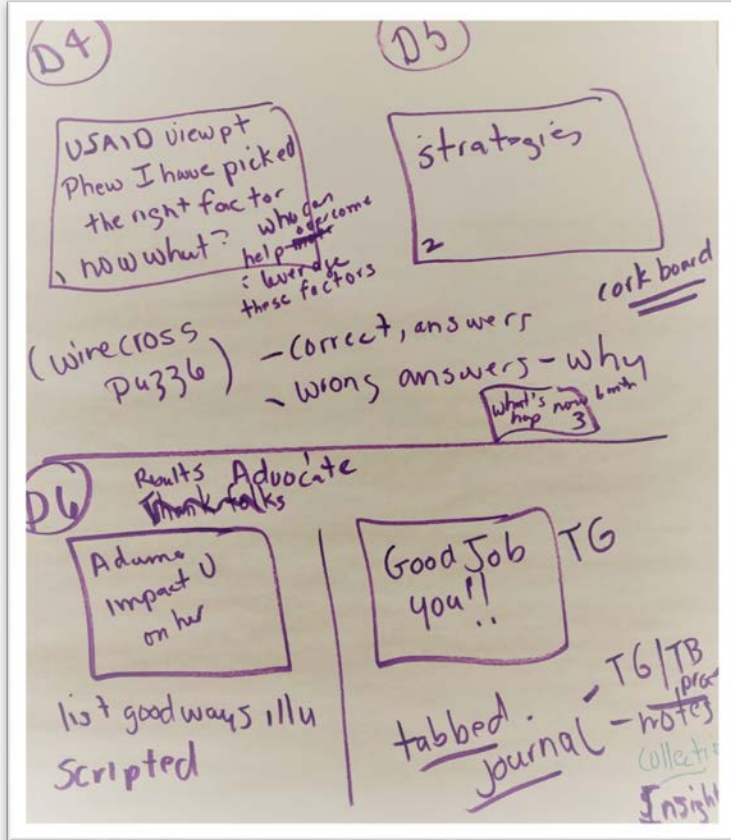 D4
USAID viewpt
Phew I have picked
the right factor
now what?
who can
help overcome
& leverage
these factors
D5
strategies
2
cork board
(wirecross
- Correct, answers
- wrong answers - why
what's now 6 mth
hap 3
D6
Results Advocate
Thank folks
Adama
impact U
on her
list good ways illu
scripted
Good Job
you!!
TG
tabbed
journal
- TG/TB
- notes